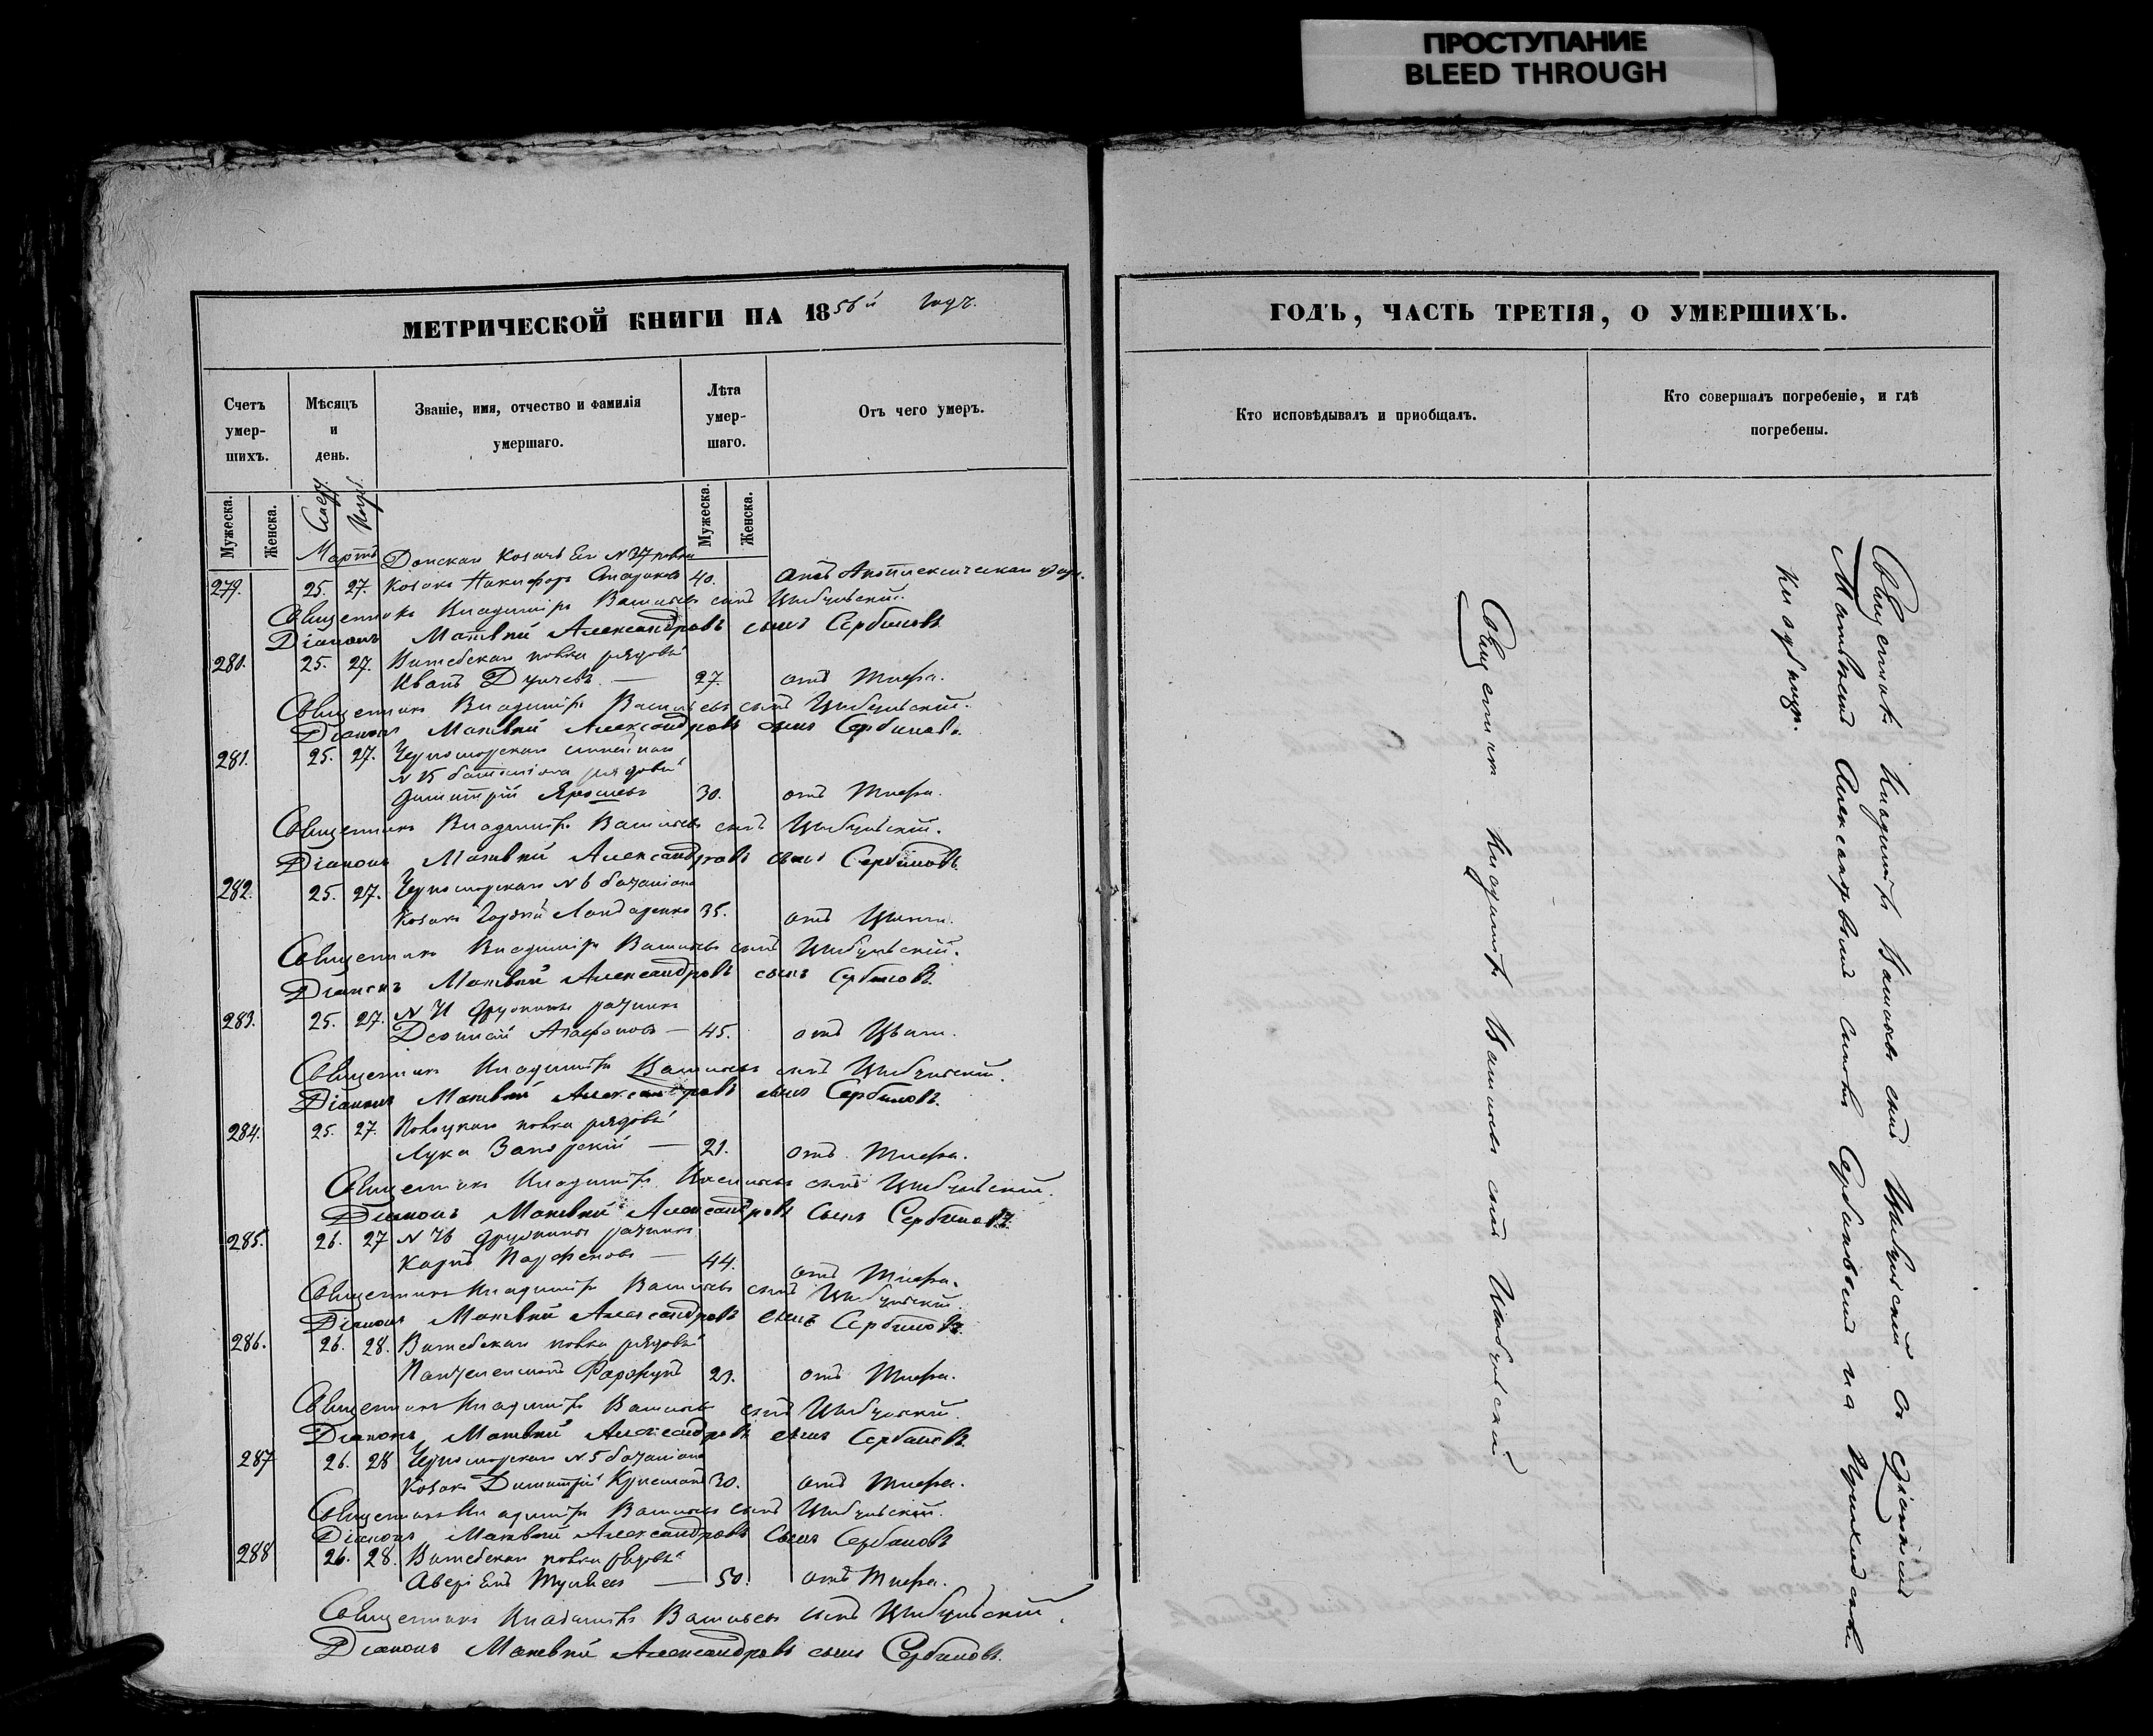 ПРОСТУПАНИЕ
BLEED THROUGH
МЕТРИЧЕСКОЙ КНИГИ НА 1856й годъ.
Счетъ умер-шихъ.
Мѣсяцъ и день.
Званіе, имя, отчество и фамилія умершаго.
Лѣта умер-шаго.
Отъ чего умеръ.
Мужеска.
Женска.
Смерт.
Погр.
Мужеска.
Женска.
Мартъ Донскаго Козачьяго N 37 полка
279. 25. 27. Козакъ Никифоръ 40. отъ Апоплексическаго удара.
Священникъ Владиміръ Васильевъ сынъ Цибульскій.
Діаконъ Матвѣй Александровъ сынъ Сербиновъ
280. 25. 27. Витебскаго полка рядовый
Иванъ 27. отъ Тифа.
Священникъ Владиміръ Васильевъ сынъ Цибульскій.
Діаконъ Матвѣй Александровъ сынъ Сербиновъ.
281. 25. 27. Черноморскаго линейнаго
N 15 баталіона рядовый
Димитрій 30. отъ Тифа.
Священникъ Владиміръ Васильевъ сынъ Цибульскій.
Діаконъ Матвѣй Александровъ сынъ Сербиновъ.
282. 25. 27. Черноморскаго N 6 баталіона
Козакъ Гордѣй Бондаренко 35. отъ Цынги.
Священникъ Владиміръ Васильевъ сынъ Цибульскій.
Діаконъ Матвѣй Александровъ сынъ Сербиновъ.
283. 25. 27. N 71 дружины ратникъ
Агафоновъ — 45. отъ Цынги.
Священникъ Владиміръ Васильевъ сынъ Цибульскій.
Діаконъ Матвѣй Александровъ сынъ Сербиновъ.
284. 25. 27. полка рядовый
Лука — 21. отъ Тифа.
Священникъ Владиміръ Васильевъ сынъ Цибульскій.
Діаконъ Матвѣй Александровъ сынъ Сербиновъ.
285. 26. 27 N 76 дружины ратникъ
Карпъ Парфеновъ — 44. отъ Тифа.
Священникъ Владиміръ Васильевъ сынъ Цибульскій.
Діаконъ Матвѣй Александровъ сынъ Сербиновъ.
286. 26. 28. Витебскаго полка рядовый
Пантелеимонъ 23. отъ Тифа.
Священникъ Владиміръ Васильевъ сынъ Цибульскій.
Діаконъ Матвѣй Александровъ сынъ Сербиновъ.
287 26. 28 Черноморскаго N 5 баталіона
Козакъ Димитрій 30. отъ Тифа.
Священникъ Владиміръ Васильевъ сынъ Цибульскій.
Діаконъ Матвѣй Александровъ сынъ Сербиновъ
288 26. 28. Витебскаго полка рядовый
— 50. отъ Тифа.
Священникъ Владиміръ Васильевъ сынъ Цибульскій.
Діаконъ Матвѣй Александровъ сынъ Сербиновъ.
ГОДЪ, ЧАСТЬ ТРЕТІЯ, О УМЕРШИХЪ.
Кто исповѣдывалъ и пріобщалъ.
Кто совершалъ погребеніе, и гдѣ погребены.
Священникъ Владиміръ Васильевъ сынъ Цибульскій
Священникъ Владиміръ Васильевъ сынъ Цибульскій съ діакономъ
Матвѣемъ Александровымъ сыномъ Сербиновымъ на
кладбищѣ.